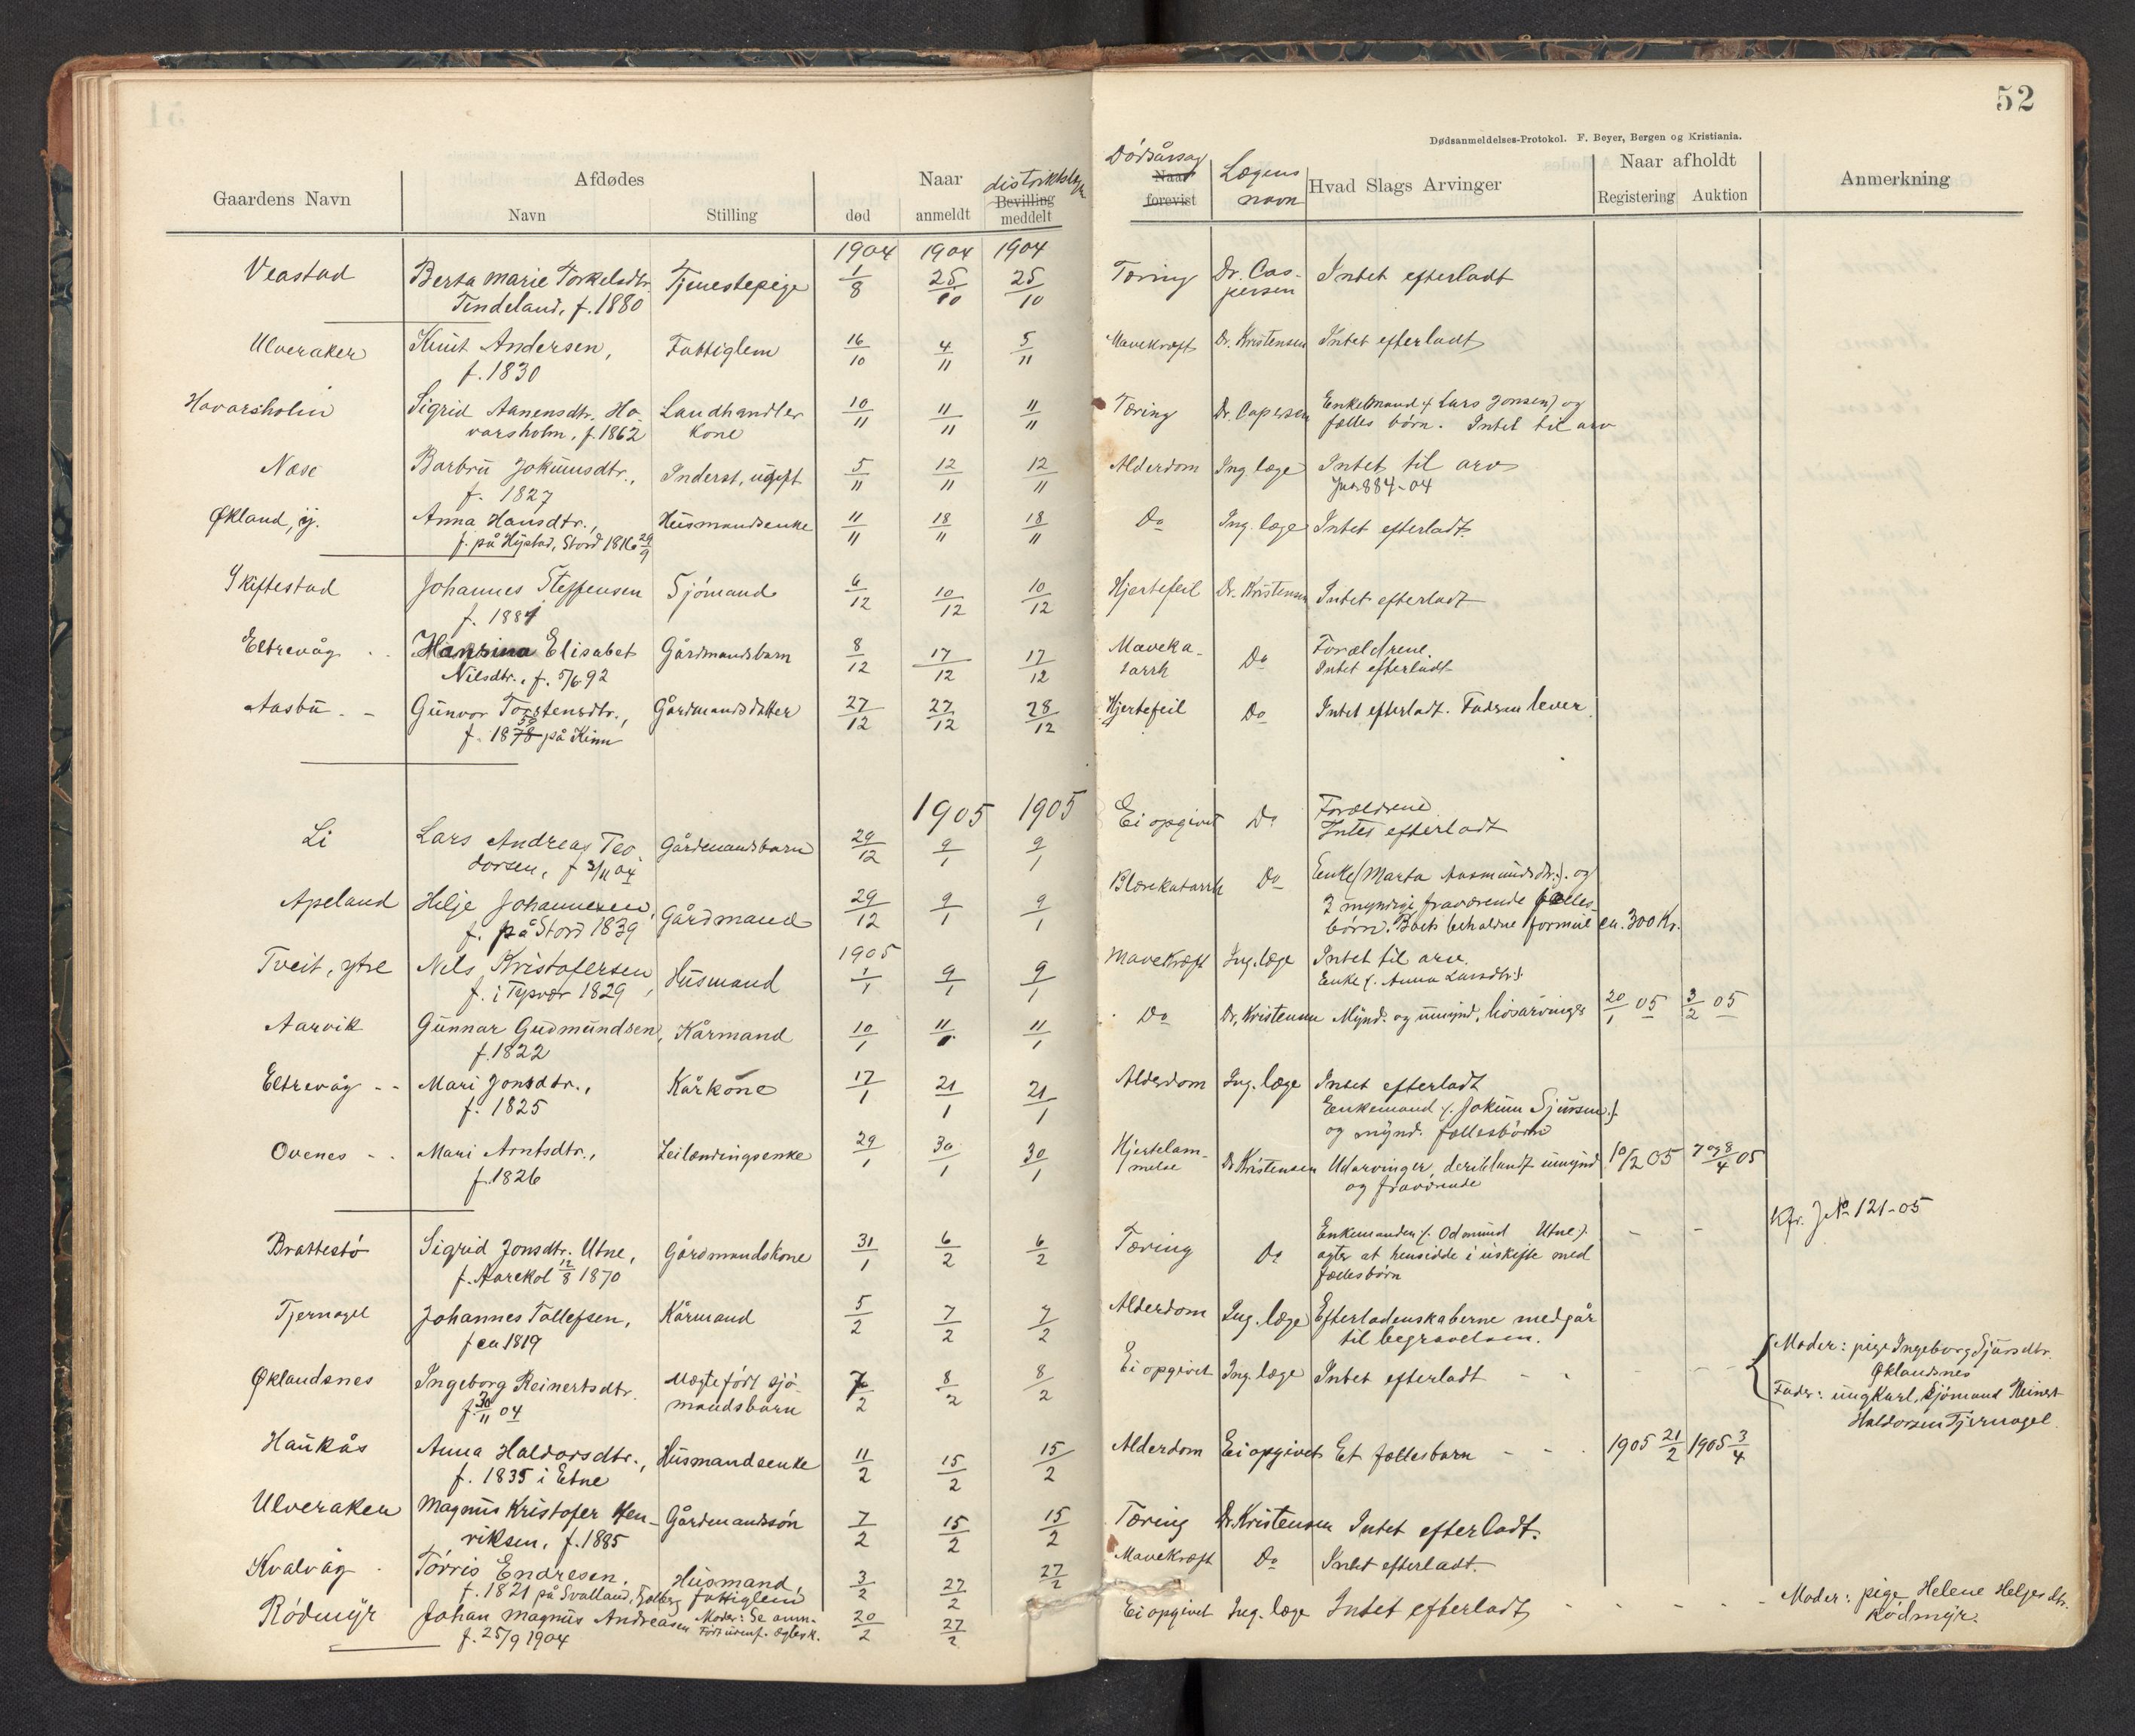 52
Dødsanmeldelses-Protokol. F. Beyer, Bergen og Kristiania.
Gaardens Navn | Afdødes | Naar | distriktslæge | Dödsårsag | Lægens navn | Hvad Slags Arvinger | Naar afholdt | Anmerkning
Navn | Stilling | død | anmeldt | Bevilling meddelt | Naar forevist | Registering | Auktion
1904 1904 1904
Veastad Berta Marie Torkelsdtr. Tjenestepige 1/8 25/10 25/10 Tæring Dr. Cas- Intet efterladt
Tindeland, f. 1880 persen
Ulveraker Knut Andersen, Fattiglem 16/10 4/11 5/11 Mavekræft Dr. Kristensen Intet efterladt
f. 1830
Havarsholm Sigrid Aanensdtr. Ha- Landhandler 10/11 11/11 11/11 Tæring Dr. Caspersen Enkemand (Lars Jonsen) og
varsholm, f. 1862 kone fælles börn. Intet til arv
Næse Barbru Jokumsdtr., Inderst, ugift 5/11 12/11 12/11 Alderdom Ing. læge Intet til arv
f. 1827 Jno 884-04
Økland, y. Anna Hansdtr., Husmandsenke 11/11 18/11 18/11 Do Ing. læge Intet efterladt.
f. på Hystad, Stord 1816 29/9
Skiftestad Johannes Steffensen Sjömand 6/12 10/12 10/12 Hjertefeil Dr. Kristensen Intet efterladt
f. 1881
Eltrevåg - - Hansina Elisabet Gårdmandsbarn 8/12 17/12 17/12 Maveka- Do Forældrene.
Nilsdtr., f. 5/6 92 tarrh Intet efterladt
Aasbu - - Gunvor Torstensdtr., Gårdmandsdatter 27/12 27/12 28/12 Hjertefeil Do Intet efterladt. Faderen lever.
f. 1878 59 på Kinn
1905 1905
Li Lars Andreas Teo- Gårdmandsbarn 29/12 9/1 9/1 Ei opgivet Do Forældrene
dorsen, f 3/11 04 Intet efterladt
Apeland Hilje Johannesen, Gårdmand 29/12 9/1 9/1 Blærekatarrh Do Enke (Marta Aasmundsdtr.) og
f. på Stord 1839 3 myndige fraværende fælles-
börn. Boets beholdne formue ca. 300 Kr.
1905
Tveit, ytre Nils Kristofersen Husmand 1/1 9/1 9/1 Mavekræft Ing. læge Intet til arv.
f. i Tysvær 1829, Enke (. Anna Larsdtr.)
Aarvik Gunnar Gudmundsen, Kårmand 10/1 11/1 11/1 Do Dr. Kristensen Mynd. og umynd. livsarvinger 20/1 05 3/2 05
f. 1822
Eltrevåg - - Mari Jonsdtr., Kårkone 17/1 21/1 21/1 Alderdom Ing. læge Intet efterladt
f. 1825 Enkemand (. Jokum Sjursen.)
og mynd. fællesbörn
Ovenes - - Mari Arntsdtr., Leilændingsenke 29/1 30/1 30/1 Hjertelam- Dr Kristensen Udarvinger, deriblandt umynd. 10/2 05 7 og 8/4 05
f. 1826 melse og fraværende
Kfr. J No 121-05
Brattestö Sigrid Jonsdtr. Utne, Gårdmandskone 31/1 6/2 6/2 Tæring Do Enkemanden (. Odmund Utne.) - -
f. Aarekol 12/8 1870 agter at hensidde i uskifte med
fællesbörn
Tjernagel Johannes Tollefsen, Kårmand 5/2 7/2 7/2 Alderdom Ing. læge Efterladenskaberne medgår
f ca 1819 til begravelsen.
Øklandsnes Ingeborg Reinertsdtr. Uægte född sjö- 7/2 8/2 8/2 Ei opgivet Ing. læge Intet efterladt - - - - Moder: pige Ingeborg Sjursdtr.
f. 30/11 04 mandsbarn Øklandsnes
Fader: ungkarl, sjömand Reinert
Haldorsen Tjernagel.
Haukås Anna Haldorsdtr., Husmandsenke 11/2 15/2 15/2 Alderdom Ei opgivet Et fællesbarn - - - 1905 21/2 1905 3/4
f. 1835 i Etne
Ulveraker Magnus Kristofer Hen- Gårdmandssön 7/2 15/2 15/2 Tæring Dr Kristensen Intet efterladt.
riksen, f. 1885
Kvalvåg - Törris Endresen, Husmand, 3/2 27/2 27/2 Mavekræft Do Intet efterladt.
f. 1821 på Svalland, Fjelberg fattiglem
Rödmyr Johan Magnus Andreasen Moder: Se anm. 20/2 27/2 Ei opgivet Ing. læge Intet efterladt - - - - - Moder: pige Helene Helgesdtr.
f. 25/9 1904 Rödmyr.